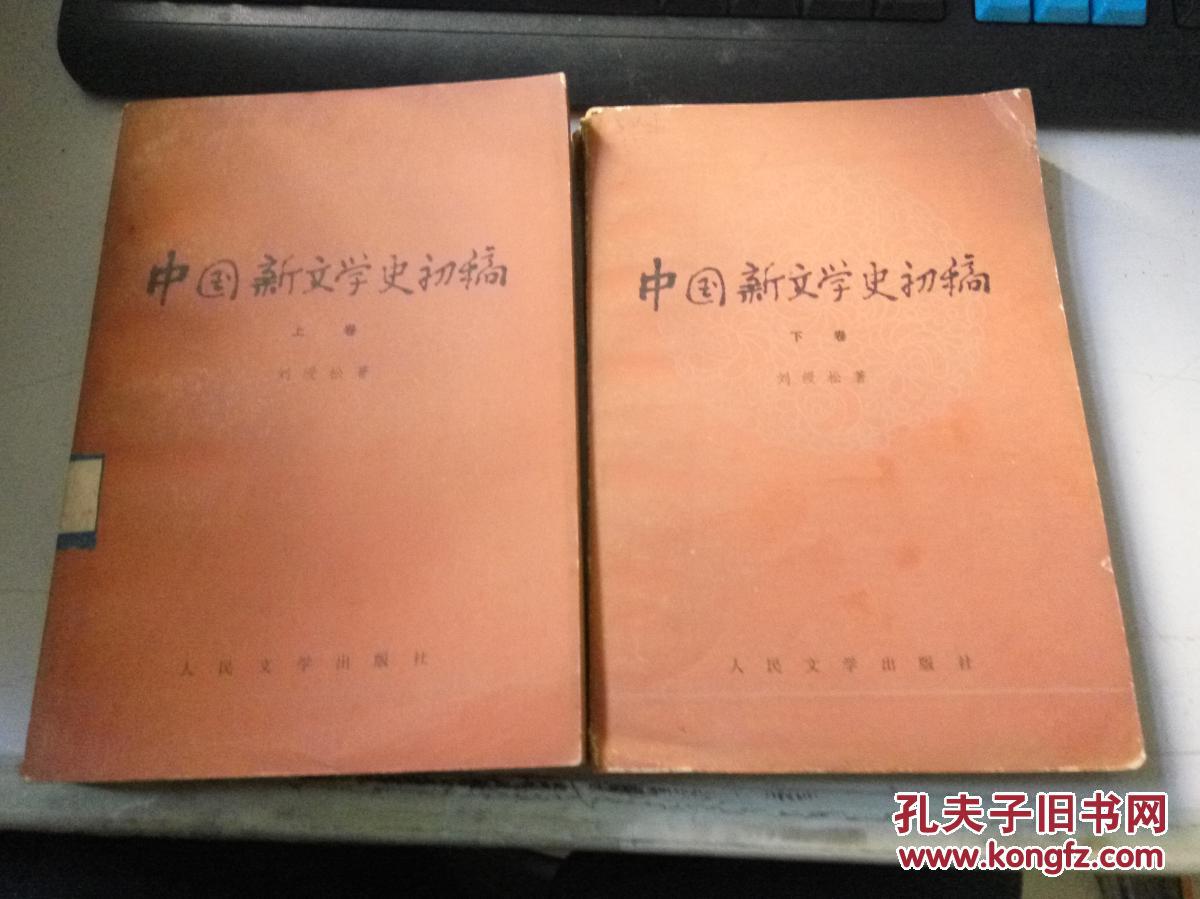 中国新文学史初稿
上卷
刘绶松著
人民文学出版社
中国新文学史初稿
下卷
刘绶松著
人民文学出版社
孔夫子旧书网
www.kongfz.com